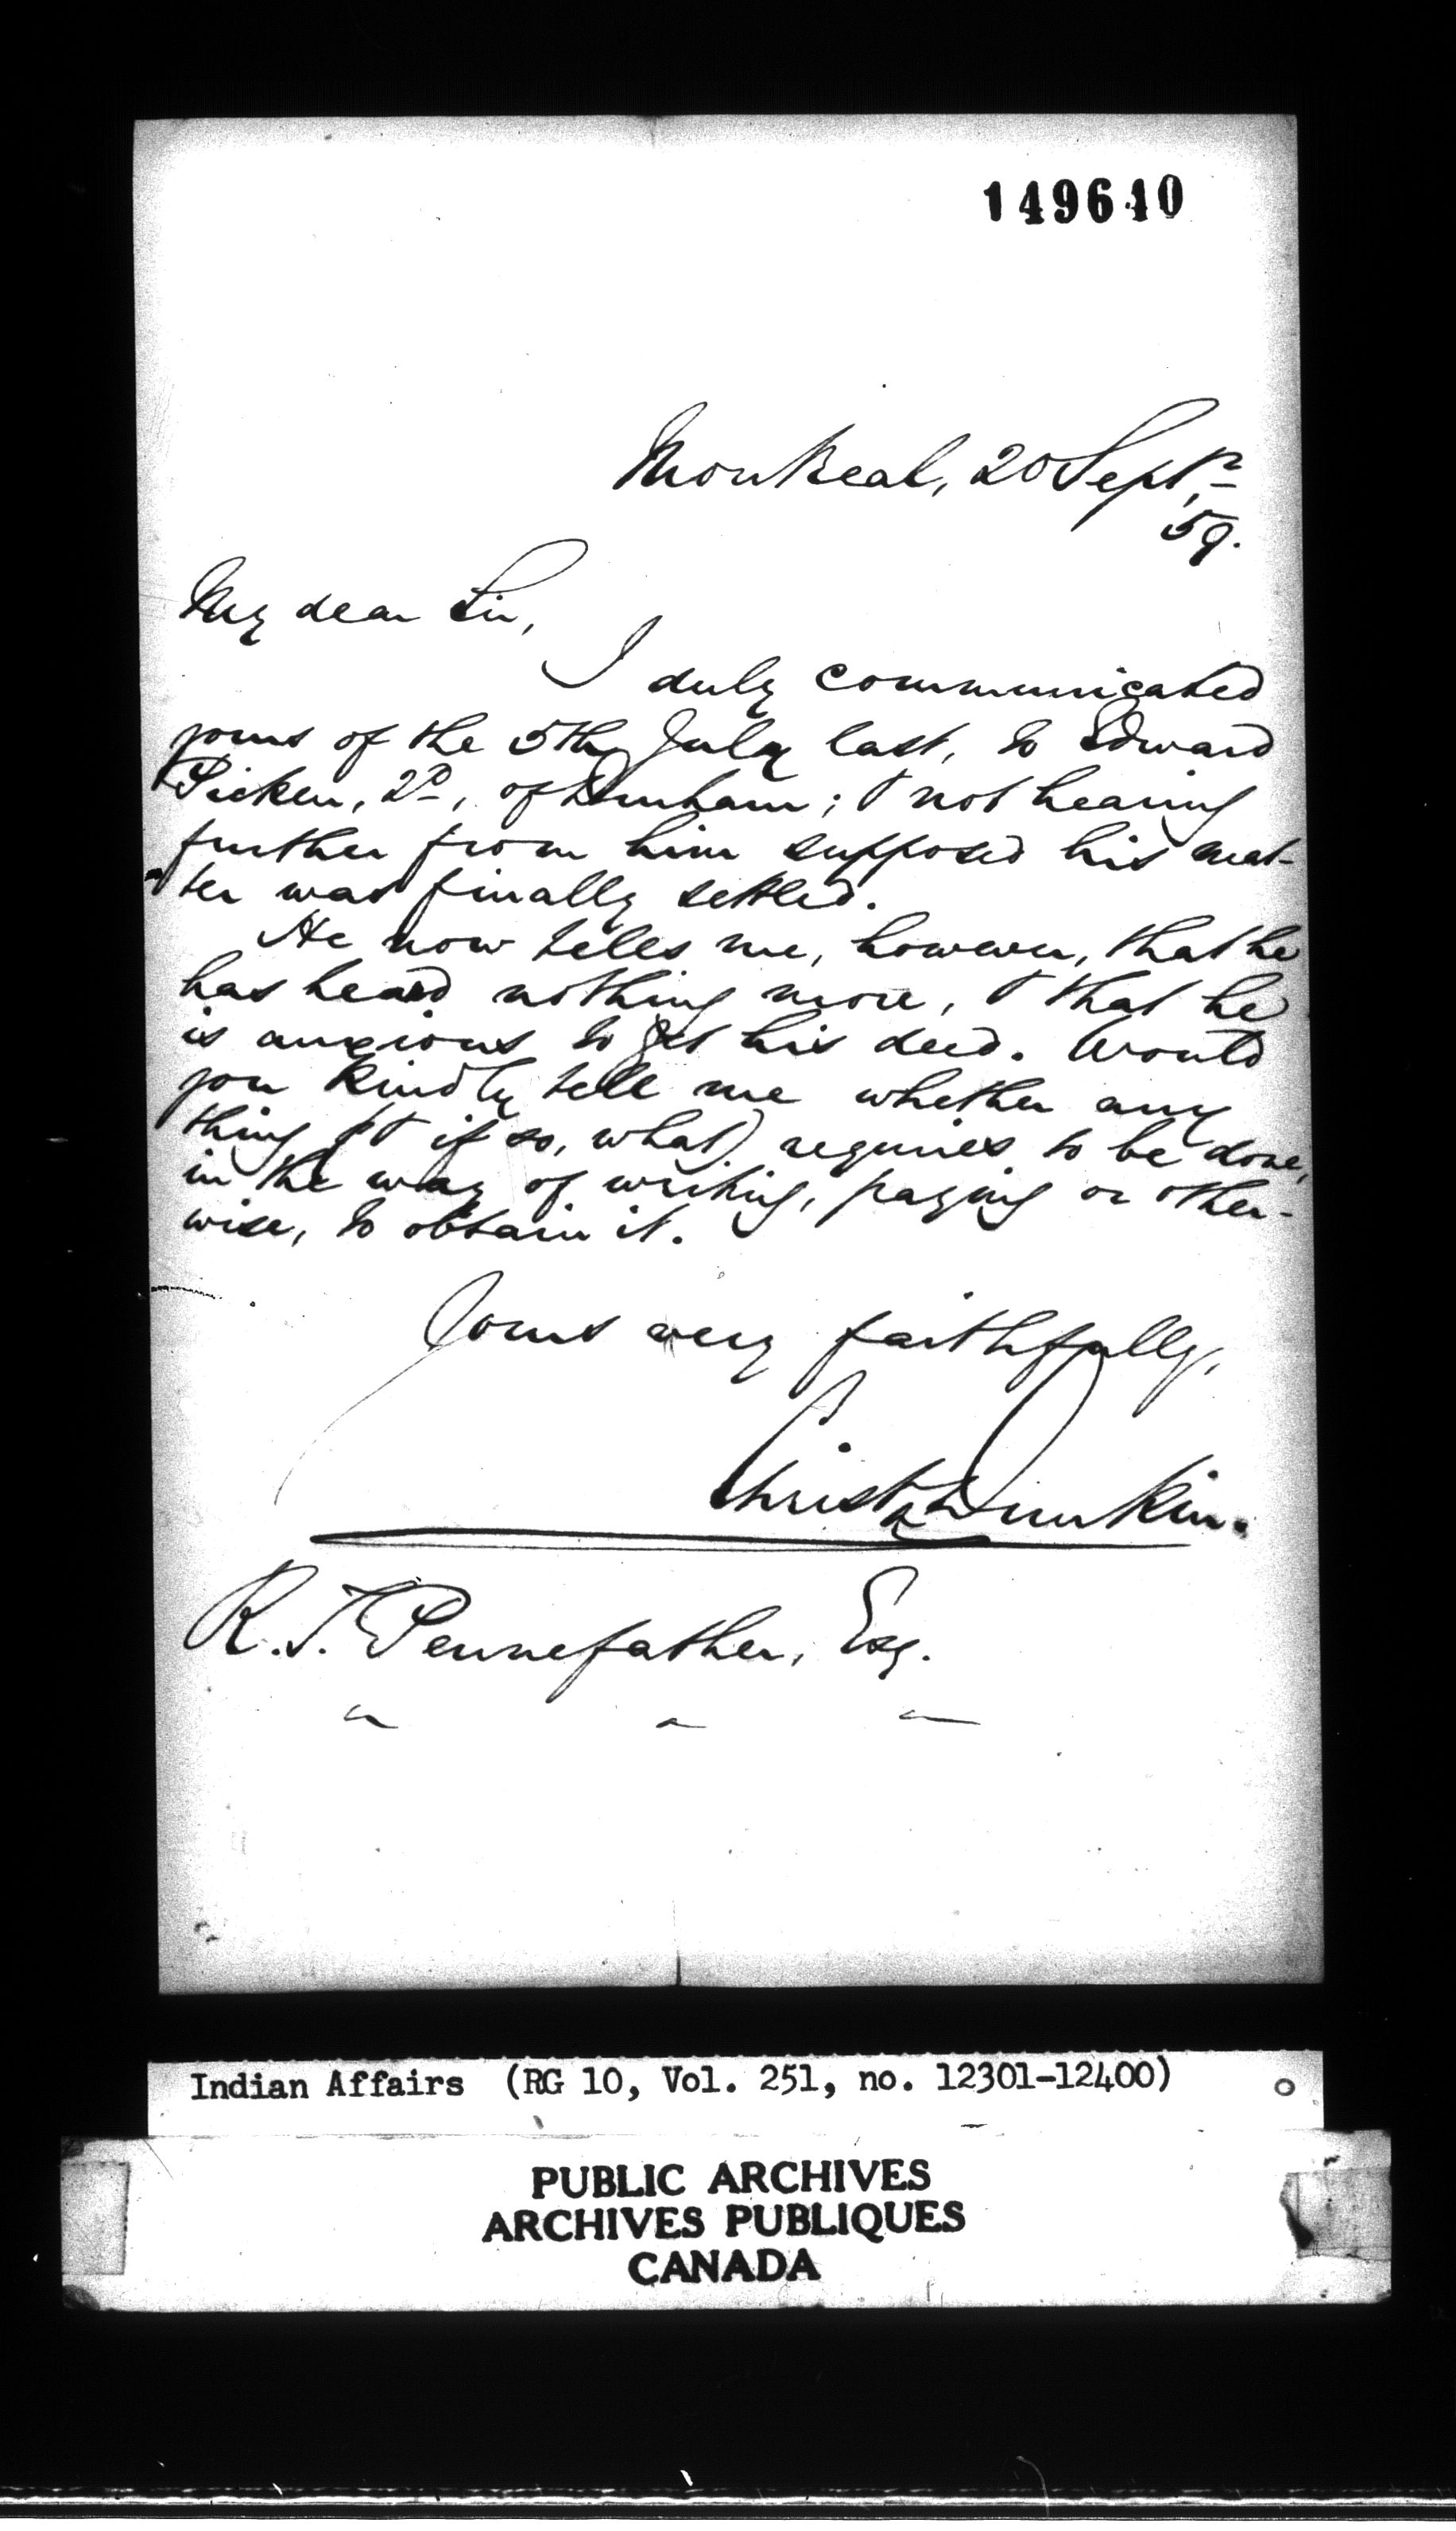 149640
Montreal, 20 Septr
59.
My dear Sir,
I duly communicated
yours of the 5th July last, to Edward
Picken, 2d, of Dunham; & not hearing
further from him supposed his mat-
ter was finally settled.
He now tells me, however, that he
has heard nothing more, & that he
is anxious to get his deed. Would
you kindly tell me whether any
thing (& if so, what) requires to be done,
in the way of writing, paying or other-
wise, to obtain it.
Yours very faithfully,
Christr Dunkin.
R. T. Pennefather, Esq.
Indian Affairs (RG 10, Vol. 251, no. 12301-12400)
PUBLIC ARCHIVES
ARCHIVES PUBLIQUES
CANADA